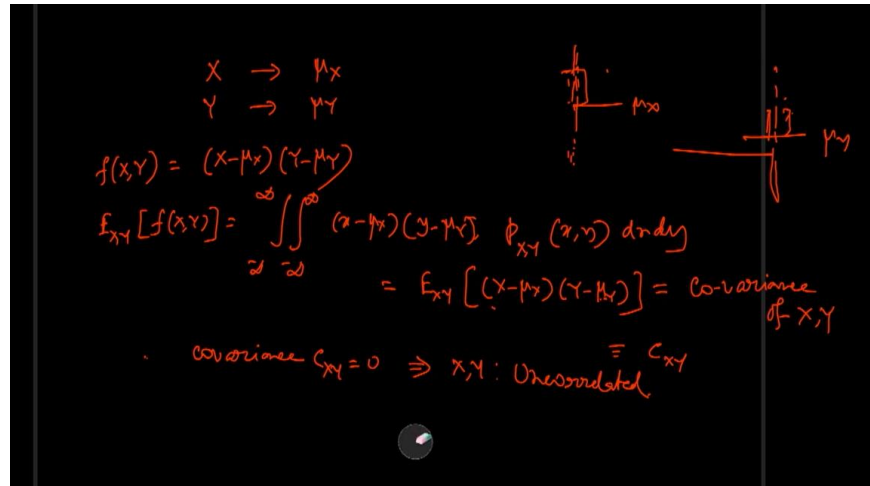 X → μX
Y → μY
μX
μY
f(X,Y) = (X-μX)(Y-μY)
EXY[f(X,Y)] = ∫∫ (x-μX)(y-μY) pXY(x,y) dxdy
∞ ∞
-∞ -∞
= EXY[(X-μX)(Y-μY)] = Co-variance
of X,Y
≡ CXY
covariance CXY = 0 ⇒ X,Y : Uncorrelated